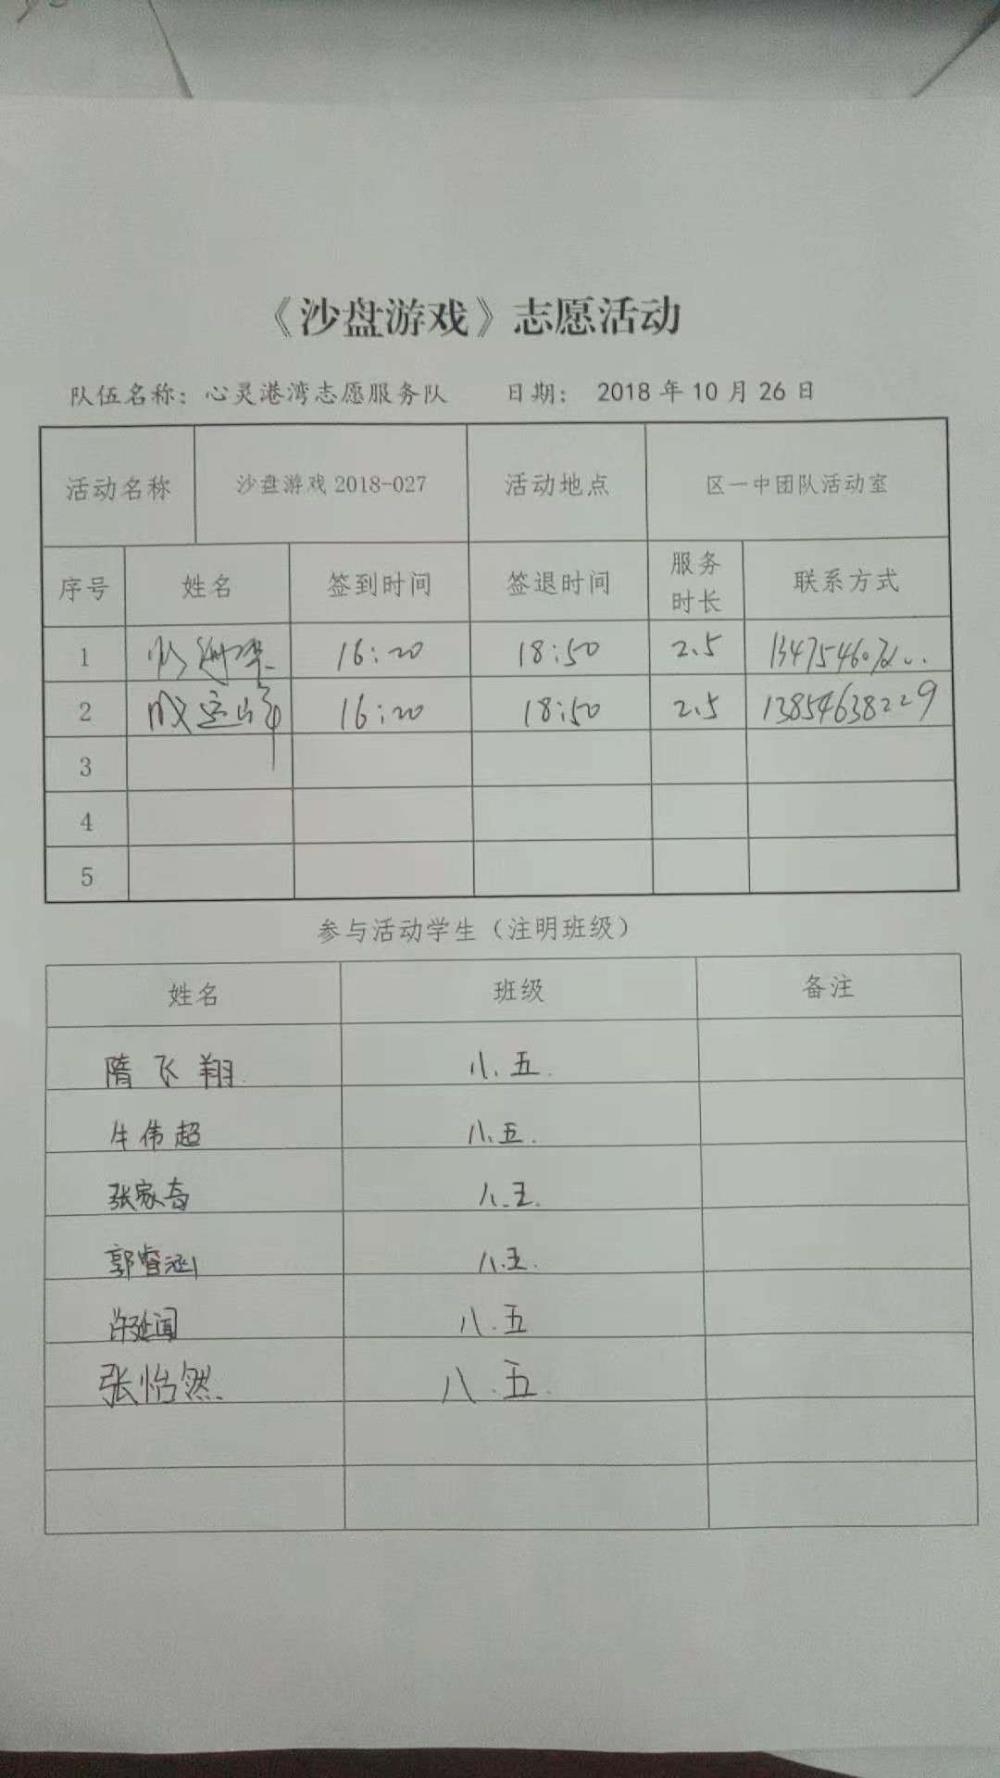 《沙盘游戏》志愿活动
队伍名称：心灵港湾志愿服务队 日期： 2018 年 10 月 26 日
活动名称 沙盘游戏 2018-027 活动地点 区一中团队活动室
序号 姓名 签到时间 签退时间 服务时长 联系方式
1 16:20 18:50 2.5
2 16:20 18:50 2.5 13854638229
3
4
5
参与活动学生（注明班级）
姓名 班级 备注
隋飞翔 八.五.
牛伟超 八.五.
张家奇 八.五.
郭睿涵 八.五.
许延闻 八.五
张怡然. 八.五.